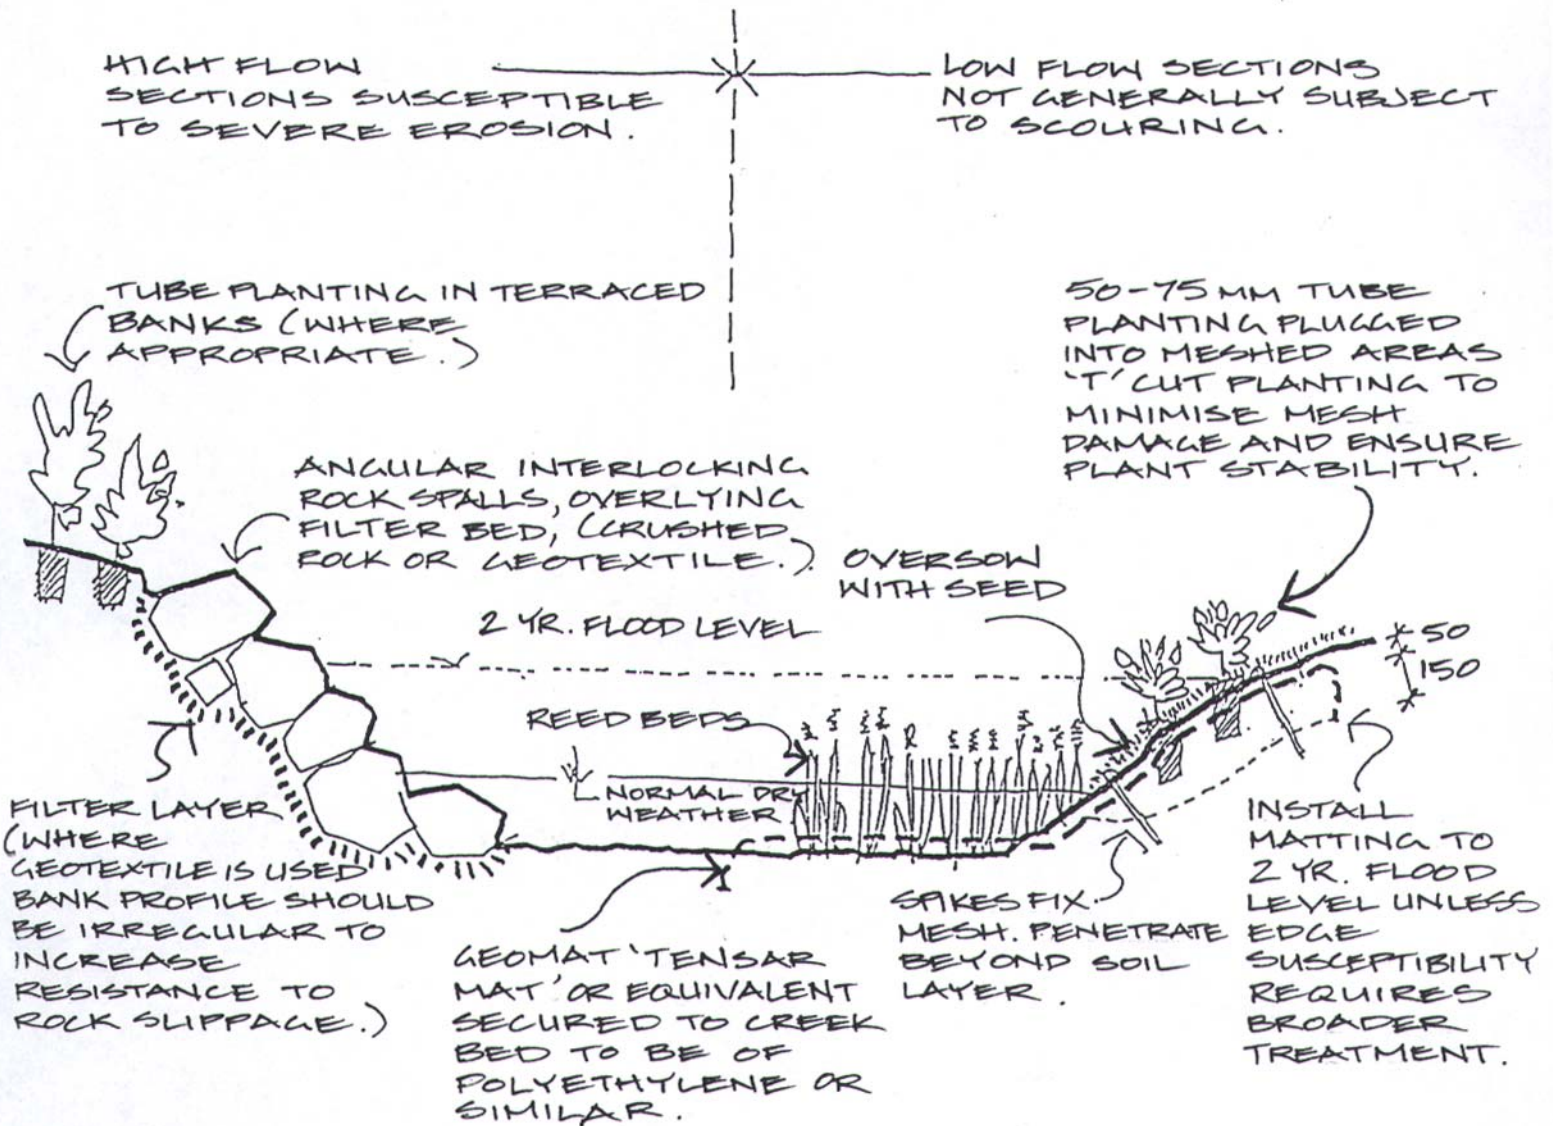 HIGH FLOW
SECTIONS SUSCEPTIBLE
TO SEVERE EROSION.
LOW FLOW SECTIONS
NOT GENERALLY SUBJECT
TO SCOURING.
TUBE PLANTING IN TERRACED
BANKS (WHERE
APPROPRIATE.)
50-75 MM TUBE
PLANTING PLUGGED
INTO MESHED AREAS
'T' CUT PLANTING TO
MINIMISE MESH
DAMAGE AND ENSURE
PLANT STABILITY.
ANGULAR INTERLOCKING
ROCK SPALLS, OVERLYING
FILTER BED, (CRUSHED
ROCK OR GEOTEXTILE.)
OVERSOW
WITH SEED
2 YR. FLOOD LEVEL
50
150
REED BEDS
NORMAL DRY
WEATHER
FILTER LAYER
(WHERE
GEOTEXTILE IS USED
BANK PROFILE SHOULD
BE IRREGULAR TO
INCREASE
RESISTANCE TO
ROCK SLIPPAGE.)
GEOMAT 'TENSAR
MAT' OR EQUIVALENT
SECURED TO CREEK
BED TO BE OF
POLYETHYLENE OR
SIMILAR.
SPIKES FIX
MESH. PENETRATE
BEYOND SOIL
LAYER.
INSTALL
MATTING TO
2 YR. FLOOD
LEVEL UNLESS
EDGE
SUSCEPTIBILITY
REQUIRES
BROADER
TREATMENT.